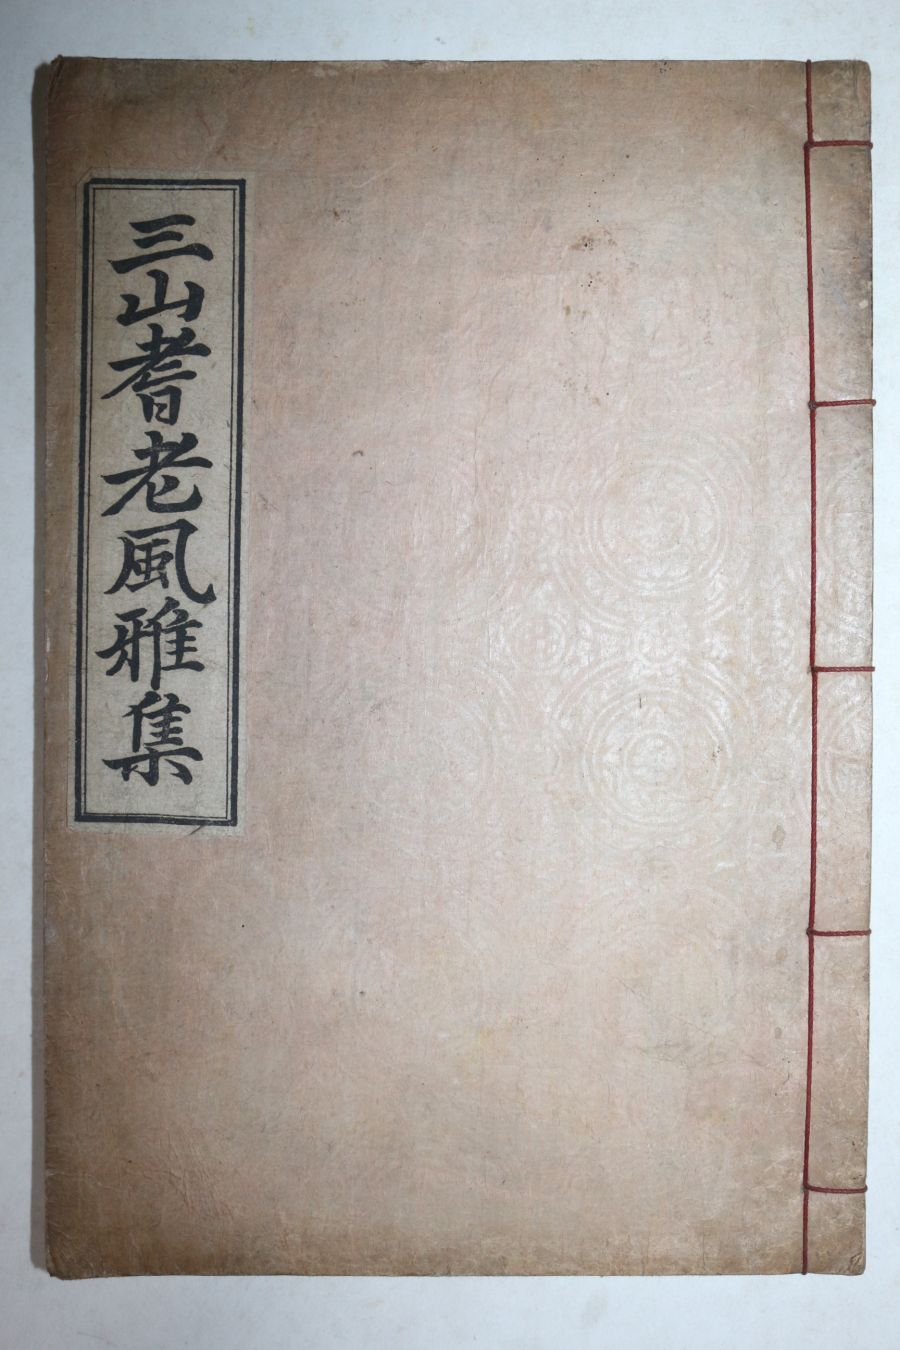 三山耆老風雅集